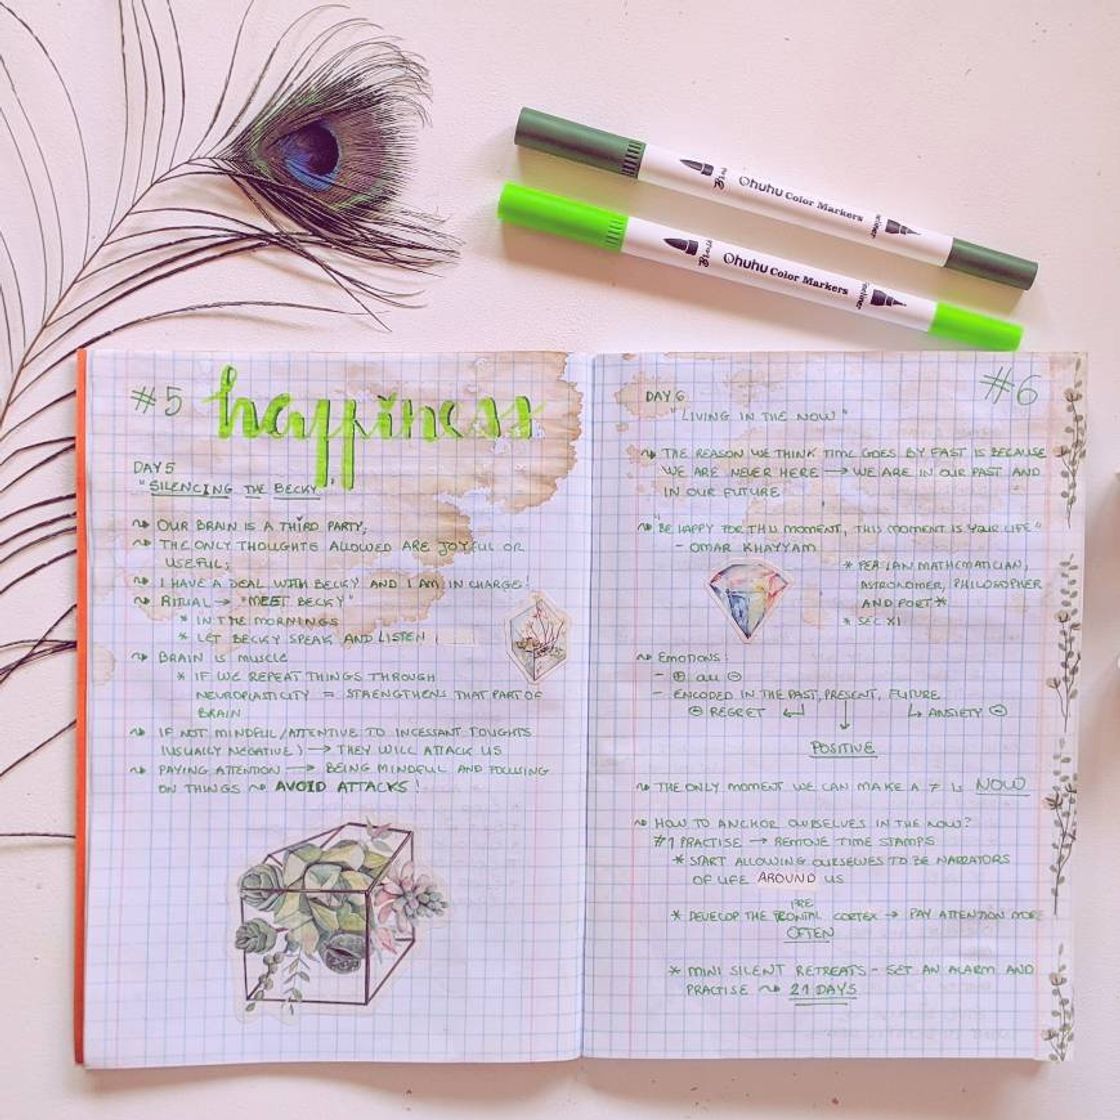 Ohuhu Color Markers
Ohuhu Color Markers
#5 happiness
DAY 5
"SILENCING THE BECKY
OUR BRAIN IS A THIRD PARTY;
THE ONLY THOUGHTS ALLOWED ARE JOYFUL OR
USEFUL;
I HAVE A DEAL WITH BECKY AND I AM IN CHARGE!
RITUAL → "MEET BECKY"
* IN THE MORNINGS
* LET BECKY SPEAK AND LISTEN!
BRAIN IS MUSCLE
* IF WE REPEAT THINGS THROUGH
NEUROPLASTICITY = STRENGTHENS THAT PART OF
BRAIN
IF NOT MINDFUL/ATTENTIVE TO INCESSANT TOUGHTS
(USUALLY NEGATIVE) → THEY WILL ATTACK US
PAYING ATTENTION → BEING MINDFUL AND FOCUSING
ON THINGS ~ AVOID ATTACKS!
#6
DAY 6
"LIVING IN THE NOW"
THE REASON WE THINK TIME GOES BY FAST IS BECAUSE
WE ARE NEVER HERE → WE ARE IN OUR PAST AND
IN OUR FUTURE
"BE HAPPY FOR THIS MOMENT, THIS MOMENT IS YOUR LIFE"
- OMAR KHAYYAM
* PERSIAN MATHEMATICIAN,
ASTRONOMER, PHILOSOPHER
AND POET *
* SEC XI
EMOTIONS:
- ⊕ OU ⊖
- ENCODED IN THE PAST, PRESENT, FUTURE
⊖ REGRET ↵ ↓ ↳ ANXIETY ⊖
POSITIVE
THE ONLY MOMENT WE CAN MAKE A ≠ IS NOW
HOW TO ANCHOR OURSELVES IN THE NOW?
#1 PRACTISE → REMOVE TIME STAMPS
* START ALLOWING OURSELVES TO BE NARRATORS
OF LIFE AROUND US
PRE
* DEVELOP THE FRONTAL CORTEX → PAY ATTENTION MORE
OFTEN
* MINI SILENT RETREATS - SET AN ALARM AND
PRACTISE ~ 21 DAYS